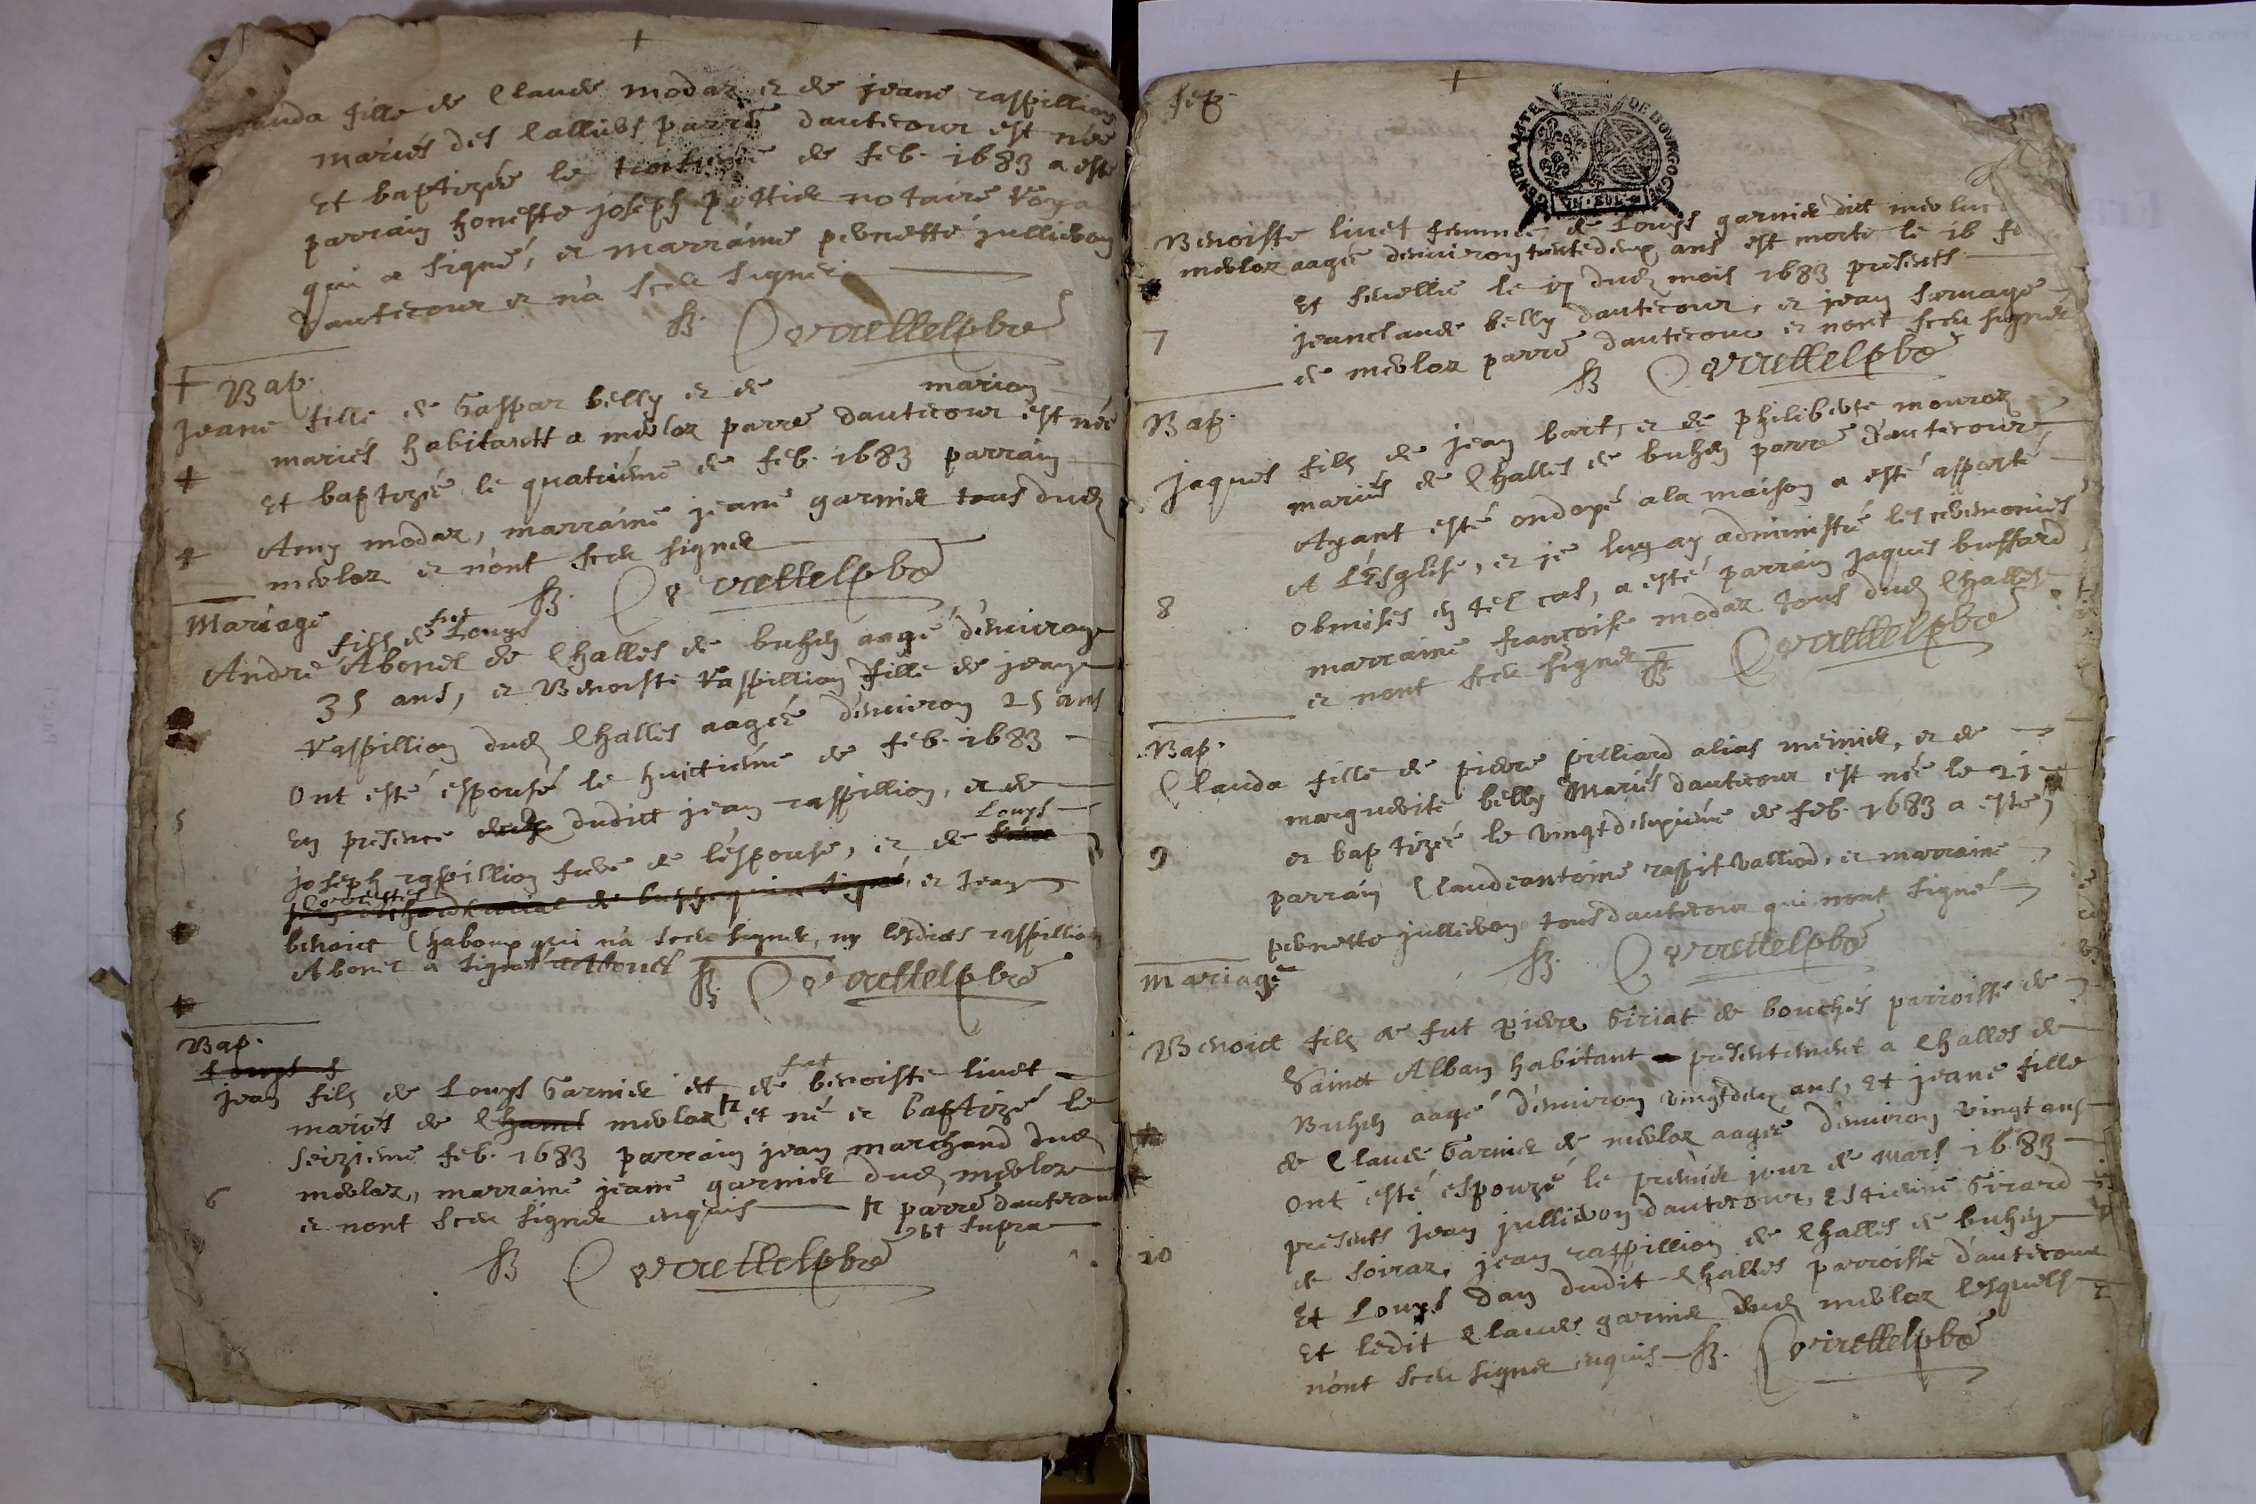 fille de Claude modaz et de jeane raspillion
mariés des Lallieres parre dautecour est née
Et baptizée le troisiéme de feb. 1683 a esté
parrain honeste joseph notaire
qui a signé, et marraine pernette jullieron
dautecour et n'a sceu signer
Bap.
Jeane fille de Gaspar belly et de marion
mariés habitantt a merloz parre dautecour est née
Et baptizée le quatriéme de feb. 1683 parrain
Amy modaz, marraine jeane garnier tous dud
merloz et n'ont sceu signer
Mariage
fils de fut Louys
André Abonel de Challes de buhen aagé d'environ
35 ans, et Benoiste raspillion fille de jean
raspillion dud Challes aagée d'environ 25 ans
Ont esté espousé le huictiéme de feb. 1683
5
En presence dudict jean raspillion, et de
joseph raspillion frere de l'espouse, et de Louys
et Jean
benoict Chaboux qui n'a sceu signer, ny lesdicts raspillion
Abonel a signé
Bap.
jean fils de Louys Garnier et de fut benoiste livet
mariés de merloz et né et baptizé le
seizieme feb. 1683 parrain jean marchand dud
6
merloz, marraine jeane garnier dud merloz
et nont sceu signer enquis parre dautecour
ubt supra
sep.
GENERALITE DE BOURGOGNE
Benoiste livet femme de Louys garnier dict
merloz aagée denviron trentedeux ans est morte le 16
Et sevellie le 17 dud mois 1683 presents
7
jeanclaude belly dautecour, et jean
de merloz parre dautecour et nont sceu signer
Bap.
Jaques fils de jean bart, et de philiberte mouroz
mariés de Challes de buhen parre d'autecour
Ayant esté ondoyé a la maison a esté apporté
A l'Esglise, et je luy ay administré les ceremonies
8
obmises en tel cas, a esté parrain jaques buffard
marraine françoise modaz tous dud Challes
et nont sceu signer
Bap.
Clauda fille de pierre pilliard alias meinier, et de
marguerite belly Mariés dautecour est née le 21
et baptizée le vingtdeuxiéme de feb. 1683 a esté
9
parrain Claudeantoine raspit valliod, et marraine
pernette jullieron tous dautecour qui nont signé
Mariage
Benoict fils de fut pierre Giriat de bouchés parroisse de
Sainct Alban habitant presentement a Challes de
Buhen aagé d'environ vingtdeux ans, Et jeane fille
de Claude Garnier de merloz aagée denviron vingt ans
Ont esté espouzé le premier jour de Mars 1683
presents jean jullieron dautecour, Estienne Girard
10
de soiraz, jean raspillion de Challes de buhen
Et Louys Dan dudit Challes parroisse d'autecour
Et ledit Claude garnier dud merloz lesquels
n'ont sceu signer enquis